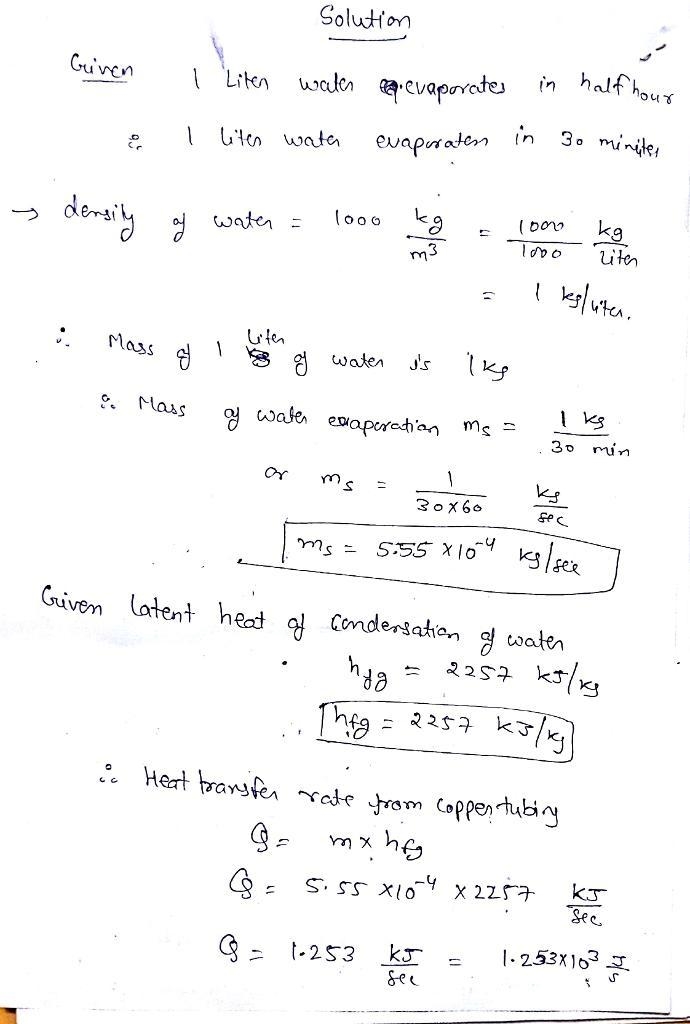 Solution
Given 1 Liter water evaporates in half hour
∴ 1 liter water evaporates in 30 minutes
→ density of water = 1000 kg/m³ = 1000/1000 kg/liter
= 1 kg/liter.
∴ Mass of 1 liter of water is 1 kg
∴ Mass of water evaporation ms = 1 kg / 30 min
or ms = 1/(30×60) kg/sec
ms = 5.55 × 10⁻⁴ kg/sec
Given latent heat of condensation of water
hfg = 2257 kJ/kg
∴ hfg = 2257 kJ/kg
∴ Heat transfer rate from copper tubing
Q = m × hfg
Q = 5.55 × 10⁻⁴ × 2257 kJ/sec
Q = 1.253 kJ/sec = 1.253×10³ J/s